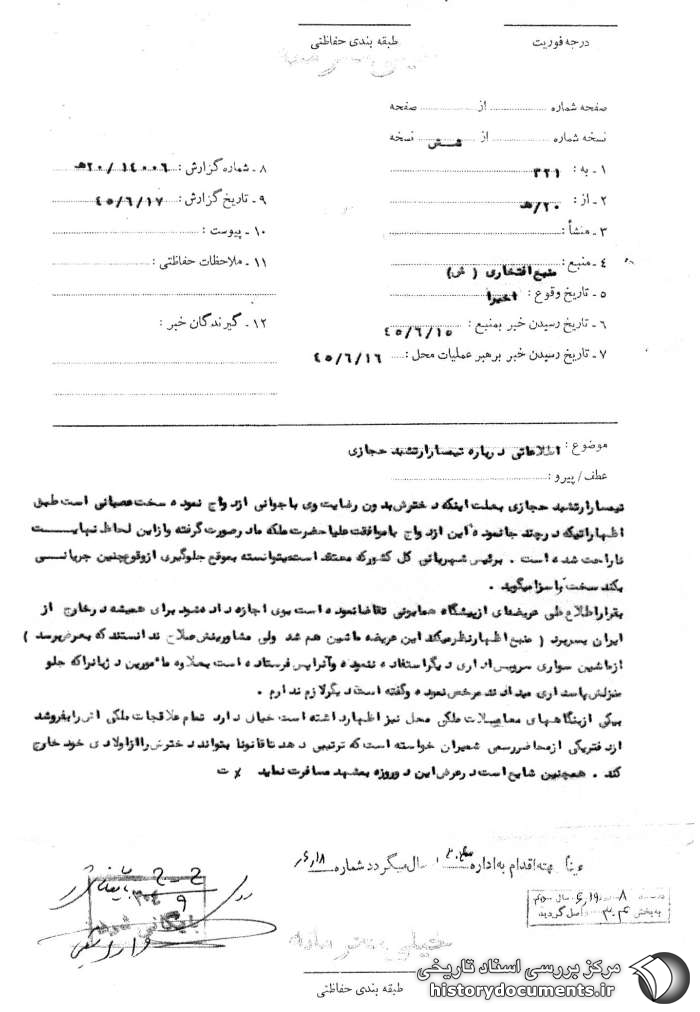 درجه فوریت
طبقه بندی حفاظتی
صفحه شماره از صفحه
نسخه شماره از شش نسخه
۱ ـ به : ۳۲۱
۲ ـ از : ۲۰/هـ
۳ ـ منشأ :
۴ ـ منبع : منبع افتخاری ( ش )
۵ ـ تاریخ وقوع : اخیرا
۶ ـ تاریخ رسیدن خبر بمنبع : ۴۵/۶/۱۵
۷ ـ تاریخ رسیدن خبر برهبر عملیات محل : ۴۵/۶/۱۶
۸ ـ شماره گزارش : ۱۴۰۰۶ /۲۰هـ
۹ ـ تاریخ گزارش : ۴۵/۶/۱۷
۱۰ ـ پیوست :
۱۱ ـ ملاحظات حفاظتی :
۱۲ ـ گیرندگان خبر :
موضوع : اطلاعاتی درباره تیمسار ارتشبد حجازی
عطف / پیرو :
تیمسار ارتشبد حجازی بعلت اینکه دخترش بدون رضایت وی با جوانی ازدواج نموده سخت عصبانی است طبق
اظهاراتیکه در چند جا نموده این ازدواج با موافقت علیا حضرت ملکه مادر صورت گرفته و از این لحاظ نهایت
ناراحت شده است . برئیس شهربانی کل کشور که معتقد است میتوانسته بموقع جلوگیری از وقوع چنین جریانی
بکند سخت ناسزا میگوید .
بقرار اطلاع طی عریضه‌ای از پیشگاه همایونی تقاضا نموده است بوی اجازه داده شود برای همیشه در خارج از
ایران بسر برد ( منبع اظهار نظر میکند این عریضه ماشین هم شد ولی مشاورینش صلاح ندانستند که بعرض برسد )
از ماشین سواری سرویس اداری دیگر استفاده ننموده و آنرا پس فرستاده است بعلاوه مامورین دژبانرا که جلو
منزلش پاسداری میدادند مرخص نموده و گفته است دیگر لازم ندارم .
بیکی از بنگاههای معاملات ملکی محل نیز اظهار داشته است خیال دارد تمام علاقجات ملکی اش را بفروشد
از دفتر یکی از محاضر رسمی شمیران خواسته است که ترتیبی دهد تا قانونا بتواند دخترش را از اولادی خود خارج
کند . همچنین شایع است در عرض این دو روزه بمشهد مسافرت نماید ت
عیناً جهته اقدام به اداره ۳۰۴ ارسال میگردد شماره ۶/۱۸
۸ ۶/۱۹ سال ۴۵
به بخش ۳۰۴ واصل گردید
۳۰۴
بایگانی شود
خیلی محرمانه
طبقه بندی حفاظتی
مرکز بررسی اسناد تاریخی
historydocuments.ir